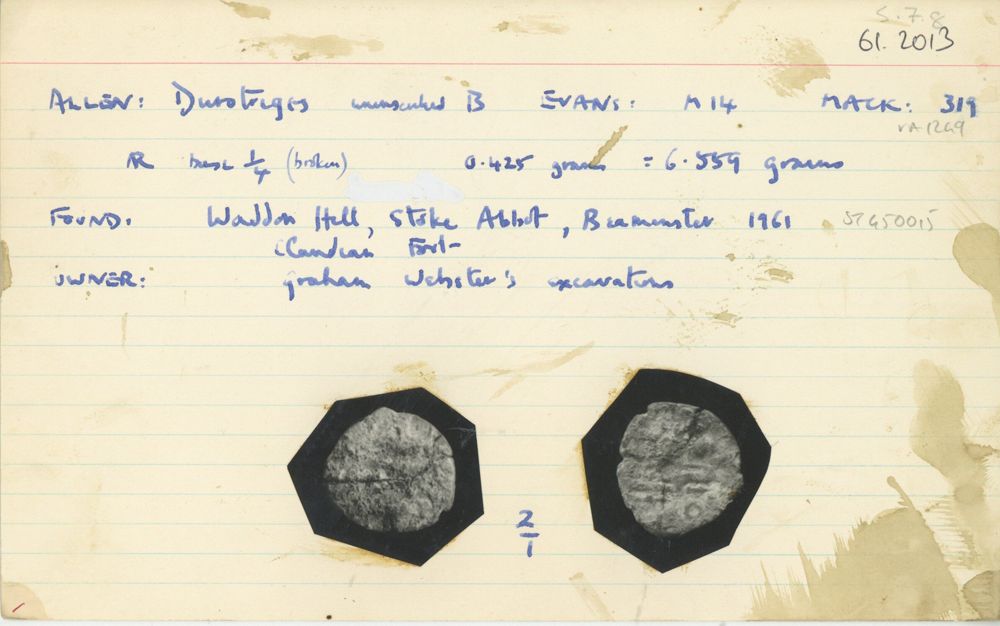 S.7.8
61.2013
ALLEN: Durotriges uninscribed B EVANS: M 14 MACK: 319
VA 1269
AR base 1/4 (broken) 0.425 grams = 6.559 grains
FOUND: Waddon Hill, Stoke Abbot, Beaminster 1961 ST 450015
Claudian Fort
OWNER: Graham Webster's excavations
2/1